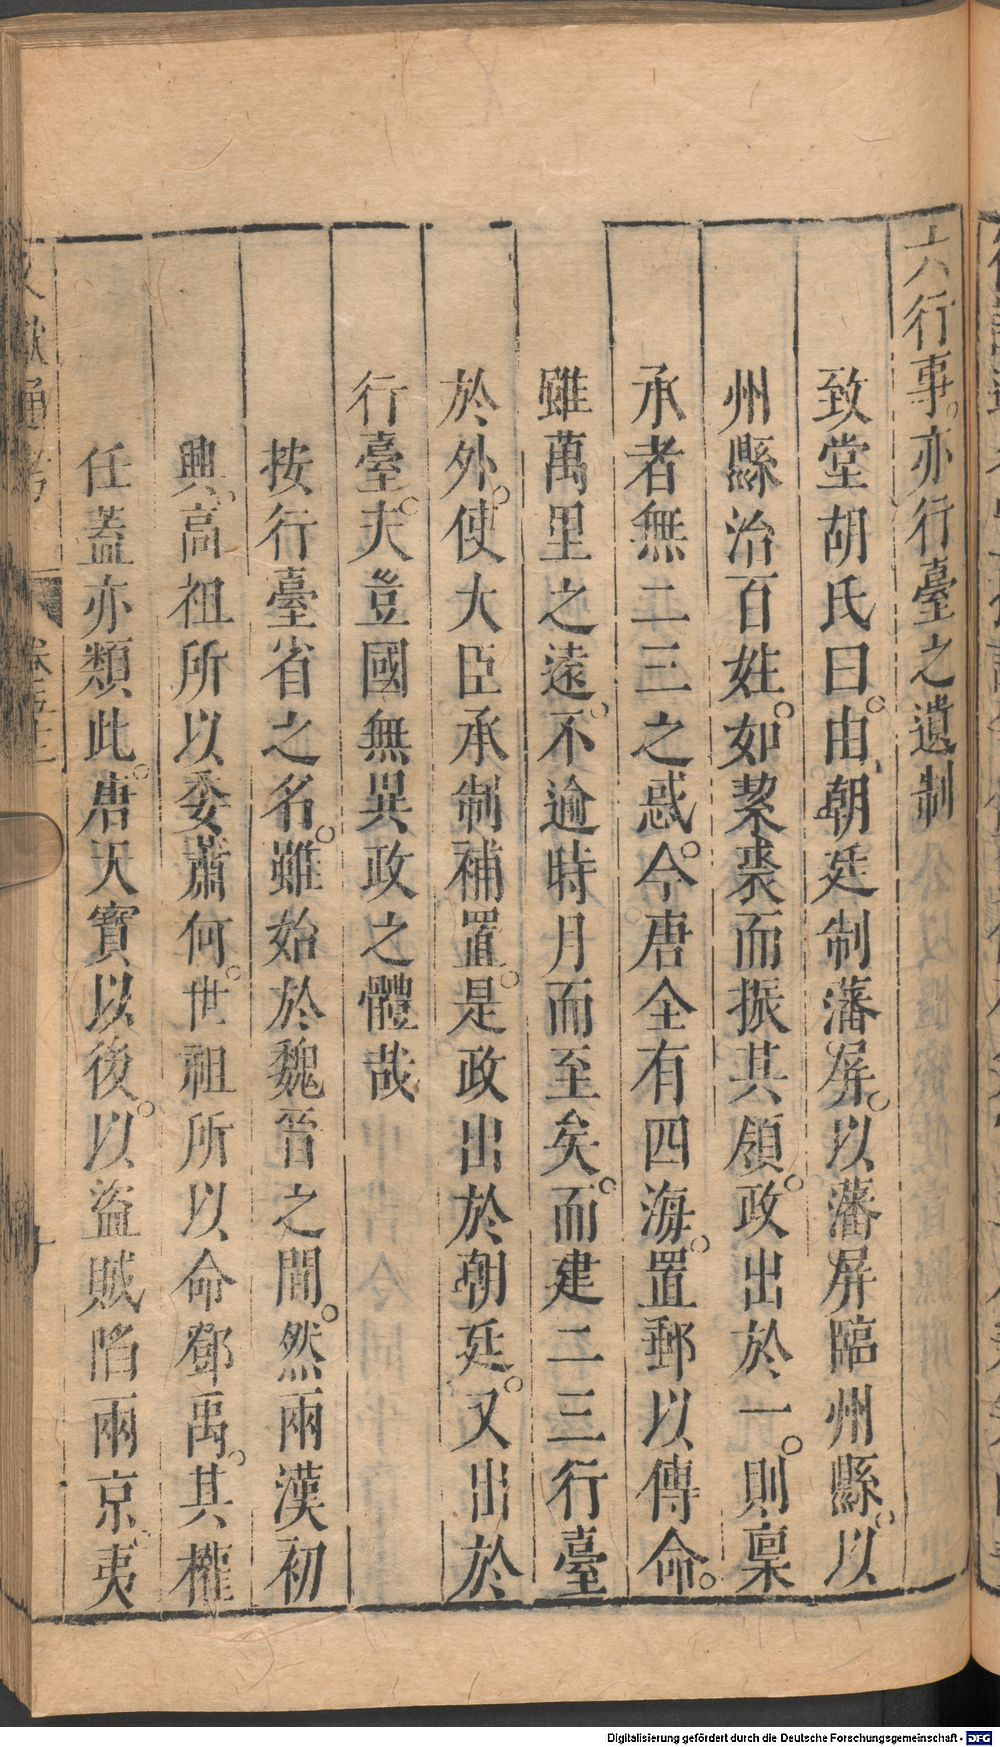 六行事。亦行臺之遺制
致堂胡氏曰。由朝廷制藩屏。以藩屏臨州縣。以
州縣治百姓。如挈裘而振其領。政出於一。則稟
承者無二三之惑。今唐全有四海。置郵以傳命。
雖萬里之遠。不逾時月而至矣。而建二三行臺
於外。使大臣承制補置。是政出於朝廷。又出於
行臺。夫豈國無異政之體哉
按行臺省之名。雖始於魏晉之間。然兩漢初
興。高祖所以委蕭何。世祖所以命鄧禹。其權
任蓋亦類此。唐天寶以後。以盜賊陷兩京。夷
文獻通考
Digitalisierung gefördert durch die Deutsche Forschungsgemeinschaft - DFG